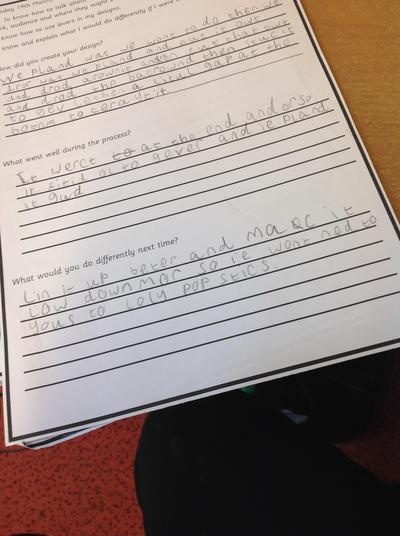 day 19th March
To know how to talk about
rk, audience and where they might
know how to use levers in my designs.
know and explain what I would do differently if I were
How did you create your design?
We pland wat we want to do then we
and drod arownd and cut that owt
and drod the bacrownd then stuc it
to gev leving a litul gap at the
botom to
What went well during the process?
It werct at the end and orso
it fitid ol to gever and ie pland
it gud
What would you do differently next time?
Lin it up beter and maec it
Low down mor so ie wont ned to
yous to loly pop stics.